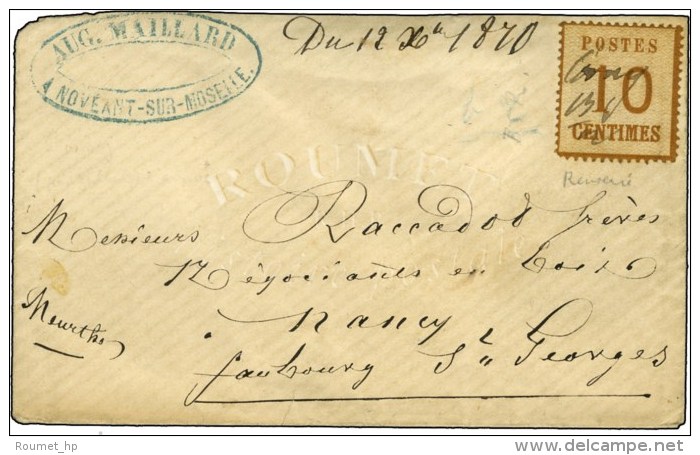 AUG. MAILLARD
A NOVÉANT-SUR-MOSELLE.
Du 12 Xbre 1870
POSTES
10
CENTIMES
ROUMET
Messieurs Raccadod frères
Négociants en bois
Nancy
Meurthe
faubourg St Georges
Roumet_hp
delcampe.net